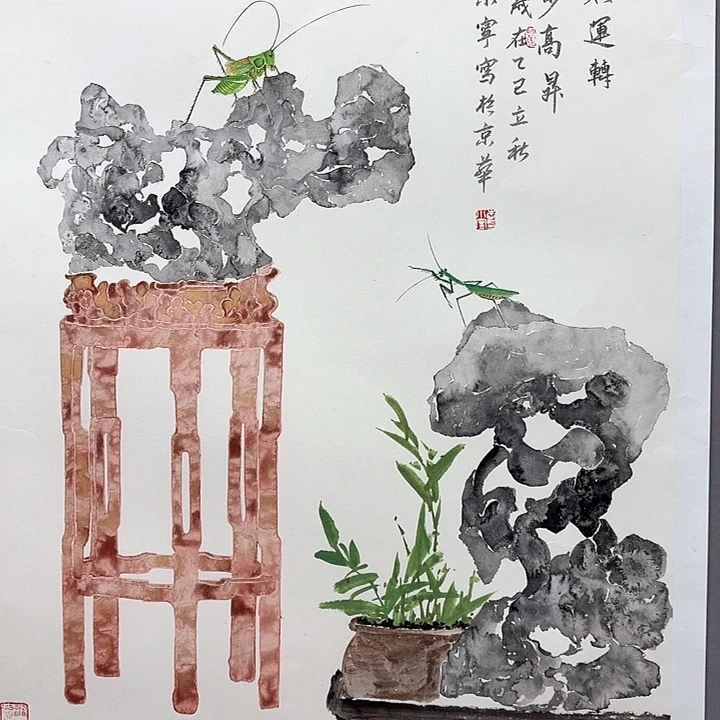 運轉
步高昇
歲在乙巳立秋
寧寫於京華